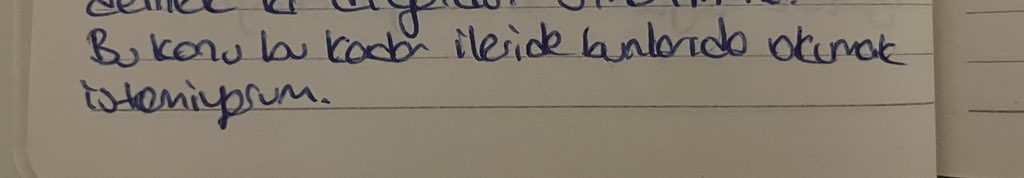 Bu konu bu kadar ileride bunlarıda okumak
istemiyorum.